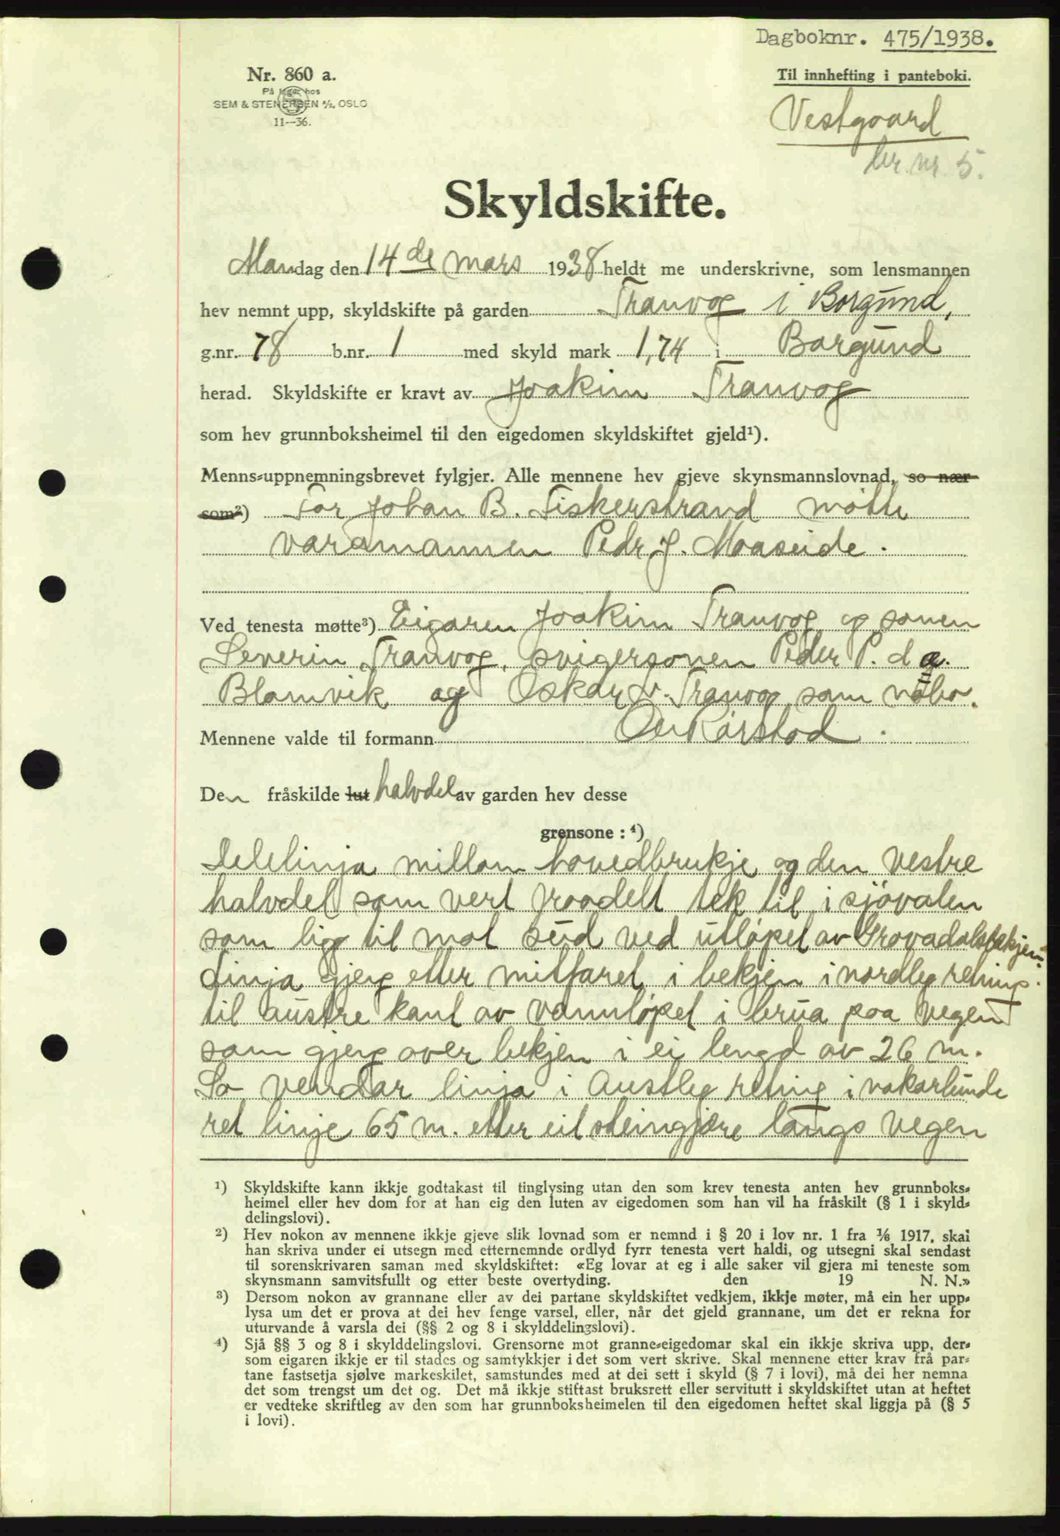 Dagboknr. 475/1938.
Nr. 860 a.
På lager hos
SEM & STENERSEN A/S, OSLO
11—36.
Til innhefting i panteboki.
Vestgaard
br. nr. 5.
Skyldskifte.
Mandag den 14de mars 1938 heldt me underskrivne, som lensmannen
hev nemnt upp, skyldskifte på garden Tranvog i Borgund,
g.nr. 78 b.nr. 1 med skyld mark 1,74 i Borgund
herad. Skyldskifte er kravt av Joakim Tranvog
som hev grunnboksheimel til den eigedomen skyldskiftet gjeld¹).
Menns-uppnemningsbrevet fylgjer. Alle mennene hev gjeve skynsmannslovnad, so nær
som²) For Johan B. Fiskerstrand møtte
varamannen Peder J. Maaseide.
Ved tenesta møtte³) Eigaren Joakim Tranvog og sonen
Severin Tranvog, svigersonen Peder P. d a.
Blomvik og Oskar Tranvog som nabo.
Mennene valde til formann
Den fråskilde lut halvdel av garden hev desse
grensone: ⁴)
Delelinja millom hovedbrukje og den vestre
halvdel som vert fraadelt tek til i sjøvalen
som ligg til mot sud ved utløpet av Grovadalsbekjen.
Linja gjeng etter mitfaret i bekjen i nordleg retning
til austre kant av vannløpet i brua paa vegen
som gjeng over bekjen i ei lengd av 26 m.
So vendar linja i Austleg retning i vakarlunde
ret linje 65 m. etter eit steingjære langs vegen
¹) Skyldskifte kann ikkje godtakast til tinglysing utan den som krev tenesta anten hev grunnboks-
heimel eller hev dom for at han eig den luten av eigedomen som han vil ha fråskilt (§ 1 i skyld-
delingslovi).
²) Hev nokon av mennene ikkje gjeve slik lovnad som er nemnd i § 20 i lov nr. 1 fra 1/6 1917, skal
han skriva under ei utsegn med etternemnde ordlyd fyrr tenesta vert haldi, og utsegni skal sendast
til sorenskrivaren saman med skyldskiftet: «Eg lovar at eg i alle saker vil gjera mi teneste som
skynsmann samvitsfullt og etter beste overtyding. den 19 N. N.»
³) Dersom nokon av grannane eller av dei partane skyldskiftet vedkjem, ikkje møter, må ein her upp-
lysa um det er prova at dei hev fenge varsel, eller, når det gjeld grannane, um det er rekna for
uturvande å varsla dei (§§ 2 og 8 i skylddelingslovi).
⁴) Sjå §§ 3 og 8 i skylddelingslovi. Grensorne mot granne-eigedomar skal ein ikkje skriva upp, der-
som eigaren ikkje er til stades og samtykkjer i det som vert skrive. Skal mennene etter krav frå par-
tane fastsetja sjølve markeskilet, samstundes med at dei sett i skyld (§ 7 i lovi), må dei her nemna
det som trengst um det og. Det må ikkje stiftast bruksrett eller servitutt i skyldskiftet utan at heftet
er vedteke skriftleg av den som har grunnboksheimelen til den eigedomen heftet skal liggja på (§ 5
i lovi).